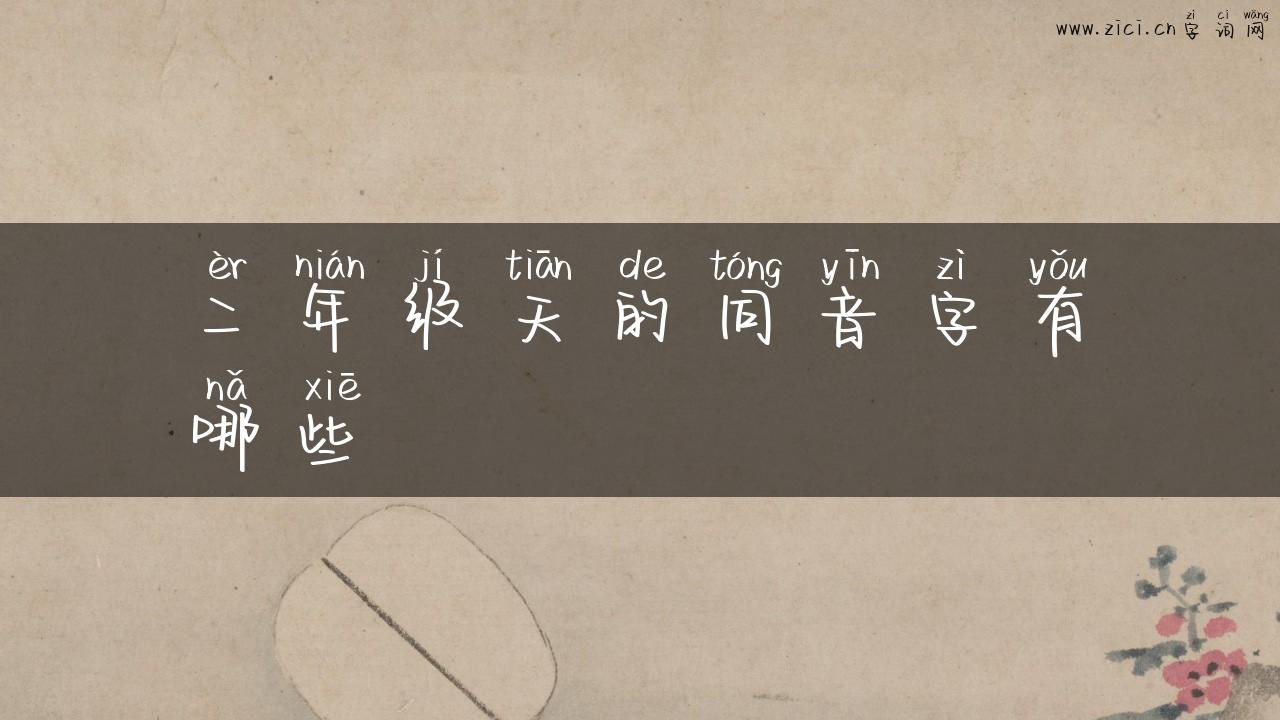 zì cí wǎng
www.zici.cn字词网
èr nián jí tiān de tóng yīn zì yǒu
二年级天的同音字有
nǎ xiē
哪些